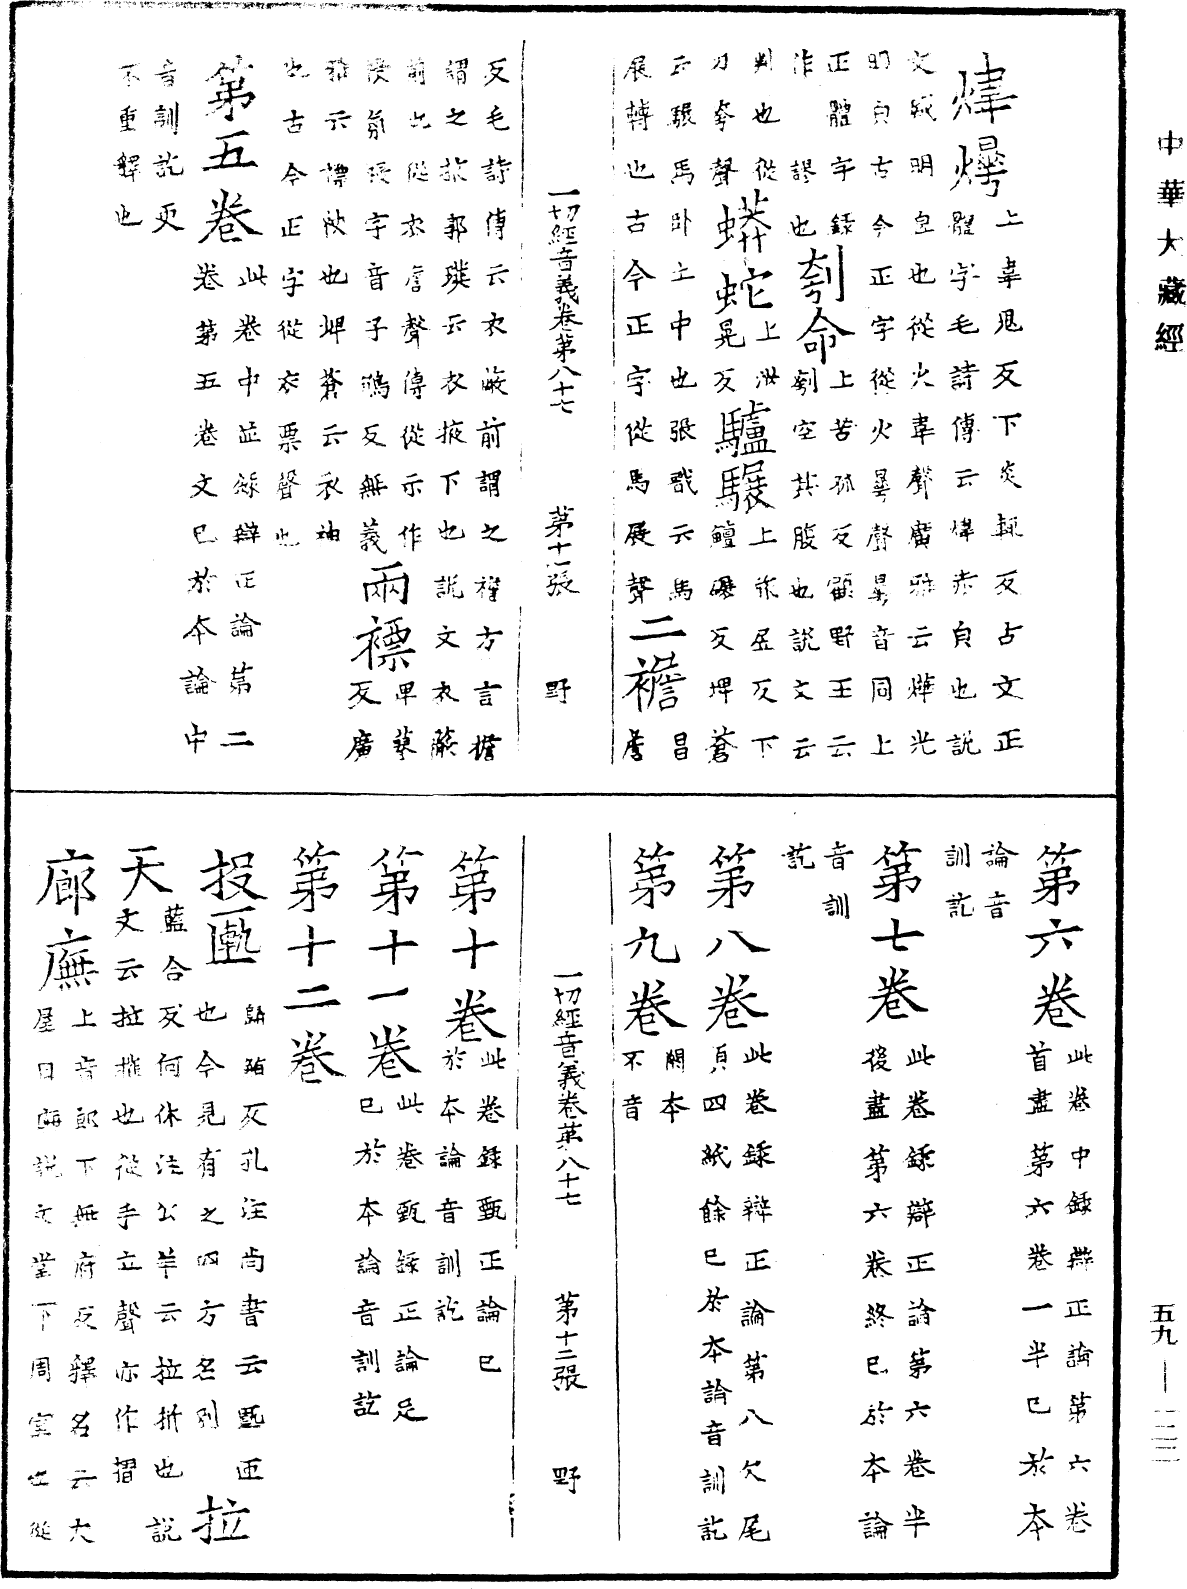 中華大藏經
煒爗上韋鬼反下炎輒反占文正
體字毛詩傳云煒赤皃也說
文盛明皃也從火韋聲廣雅云爗光
明皃古今正字從火曅聲曅音同上
正體字錄
作謬也刳命上苦孤反顧野王云
刳空其腹也說文云
判也從
刀夸聲蟒蛇上
晃反驢驏上
下
鱣碾反埤蒼
云驏馬卧土中也張戩云馬
展轉也古今正字從馬展聲二襜
昌
詹
反毛詩傳云衣蔽前謂之襜方言襜
謂之袚郭璞云衣掖下也說文衣蔽
前也從衣詹聲傳從示作
字音子鴆反無義兩褾
卑
反廣
雅云褾袂也埤蒼云衣袖
也古今正字從衣票聲也
第五卷此卷中並錄辯正論第二
卷第五卷文已於本論中
音訓訖更
不重釋也
一切經音義卷第八十七 第十一張 野
第六卷此卷中錄辯正論第六卷
首盡第六卷一半已於本
論音
訓訖
第七卷此卷錄辯正論第六卷半
後盡第六卷終已於本論
音訓
訖
第八卷此卷錄辯正論第八欠尾
頁四紙餘已於本論音訓訖
第九卷闕本
不音
一切經音義卷第八十七 第十二張 野
第十卷此卷錄甄正論已
於本論音訓訖
第十一卷此卷甄錄正論足
已於本論音訓訖
第十二卷
投匭
歸鮪反孔注尚書云匭匣
也今見有之四方名別
拉
天藍合反何休注公羊云拉折也說
文云拉摧也從手立聲亦作摺
廊廡上音郎下無府反釋名云大
屋曰廡說文堂下周室也從
五九—一二二